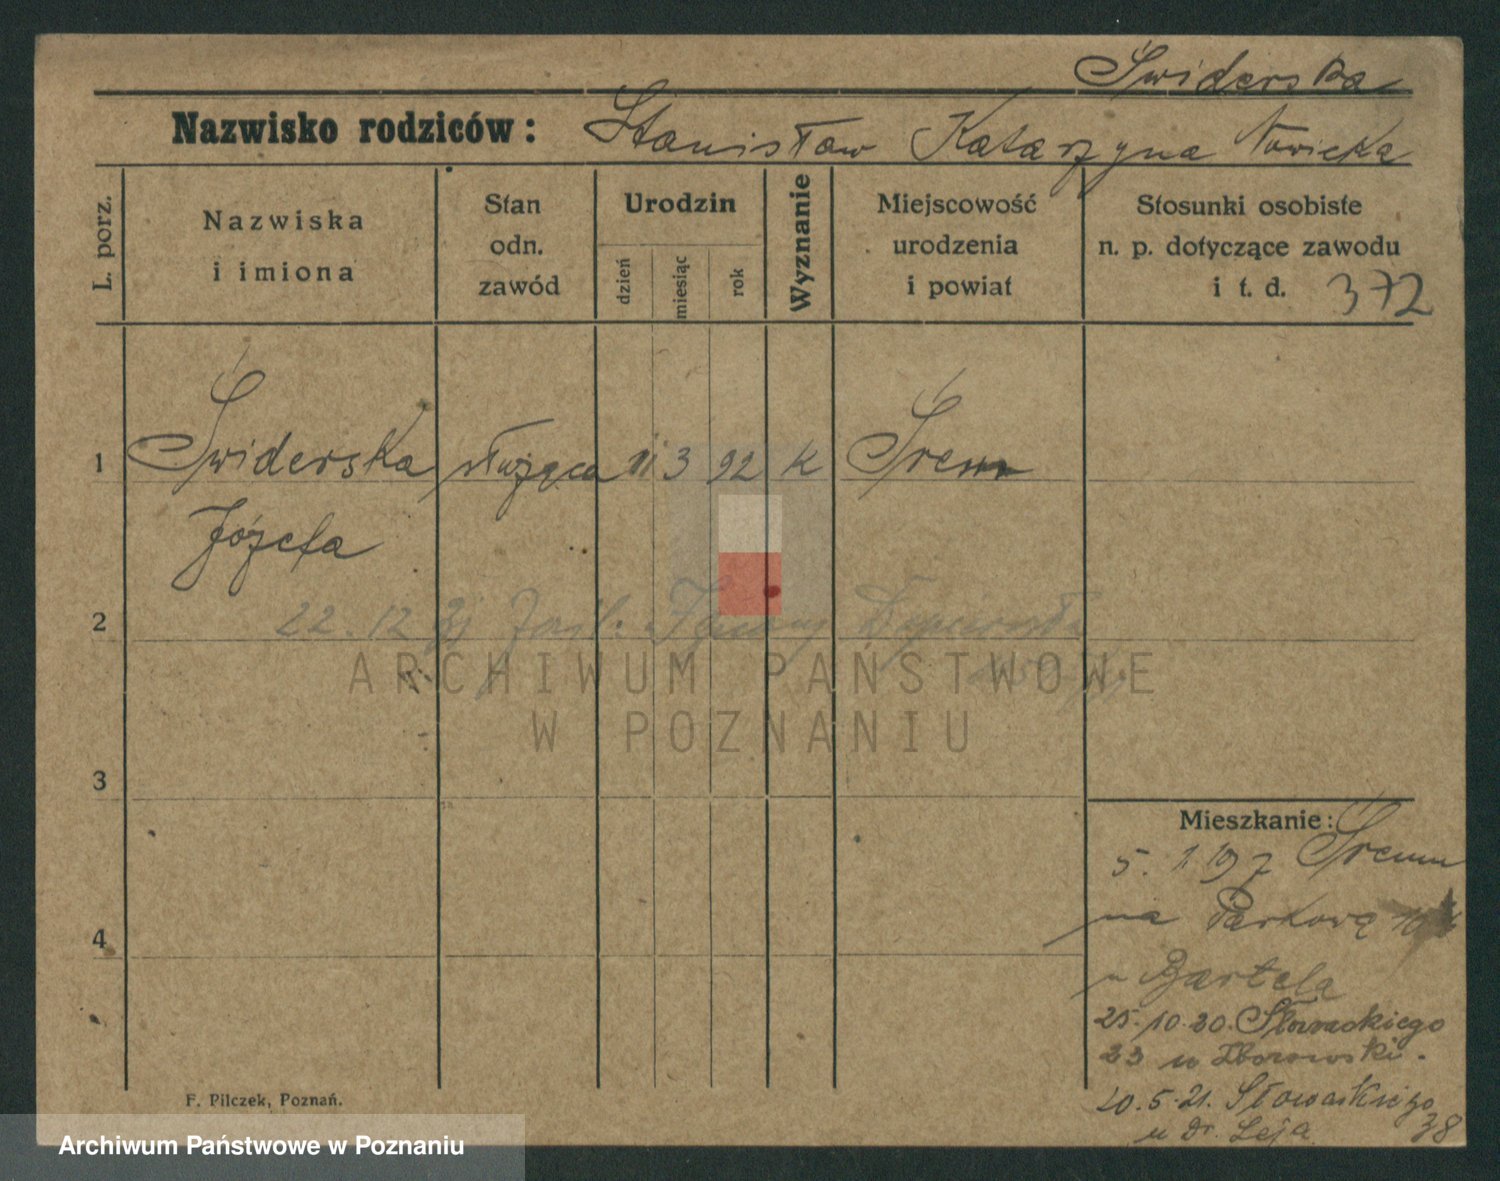 Świderska
Nazwisko rodziców: Stanisław Katarzyna Nowicka
L. porz.
Nazwiska
i imiona
Stan
odn.
zawód
Urodzin
dzień
miesiąc
rok
Wyznanie
Miejscowość
urodzenia
i powiat
Stosunki osobiste
n. p. dotyczące zawodu
i t. d. 372
1 Świderska służąca 11 3 92 K Śrem
Józefa
2 22.12 21
3
4
Mieszkanie: Śrem
5. 1. 19
na Parkową 10
u Bartela
25.10.20. Słowackiego
23 u Zborowski.
10.5.21. Słowackiego
38
u Dr. Leja
F. Pilczek, Poznań.
ARCHIWUM PAŃSTWOWE
W POZNANIU
Archiwum Państwowe w Poznaniu